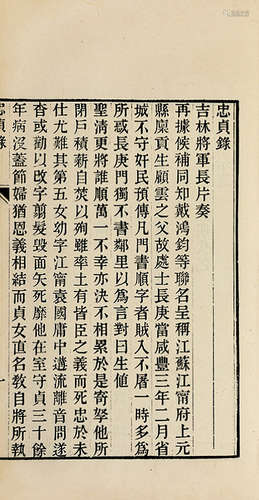 忠貞錄
吉林將軍長片奏
再據候補同知戴鴻鈞等聯名呈稱江蘇江甯府上元
縣廩貢生顧雲之父故處士長庚當咸豐三年二月省
城不守奸民預傳凡門書順字者賊入不屠一時多為
所惑長庚門獨不書鄰里以為言對曰生值
聖清更將誰順萬一不幸亦決不相累於是寄孥他所
閉戶積薪自焚以殉雖率土有皆臣之義而死忠於未
仕尤難其第五女幼字江甯袁國庸中遘流離音問遂
杳或勸以改字翦髮毀面矢死靡他在室守貞三十餘
年病沒蓋節婦猶恩義相結而貞女直名教自將所執
忠貞錄
一